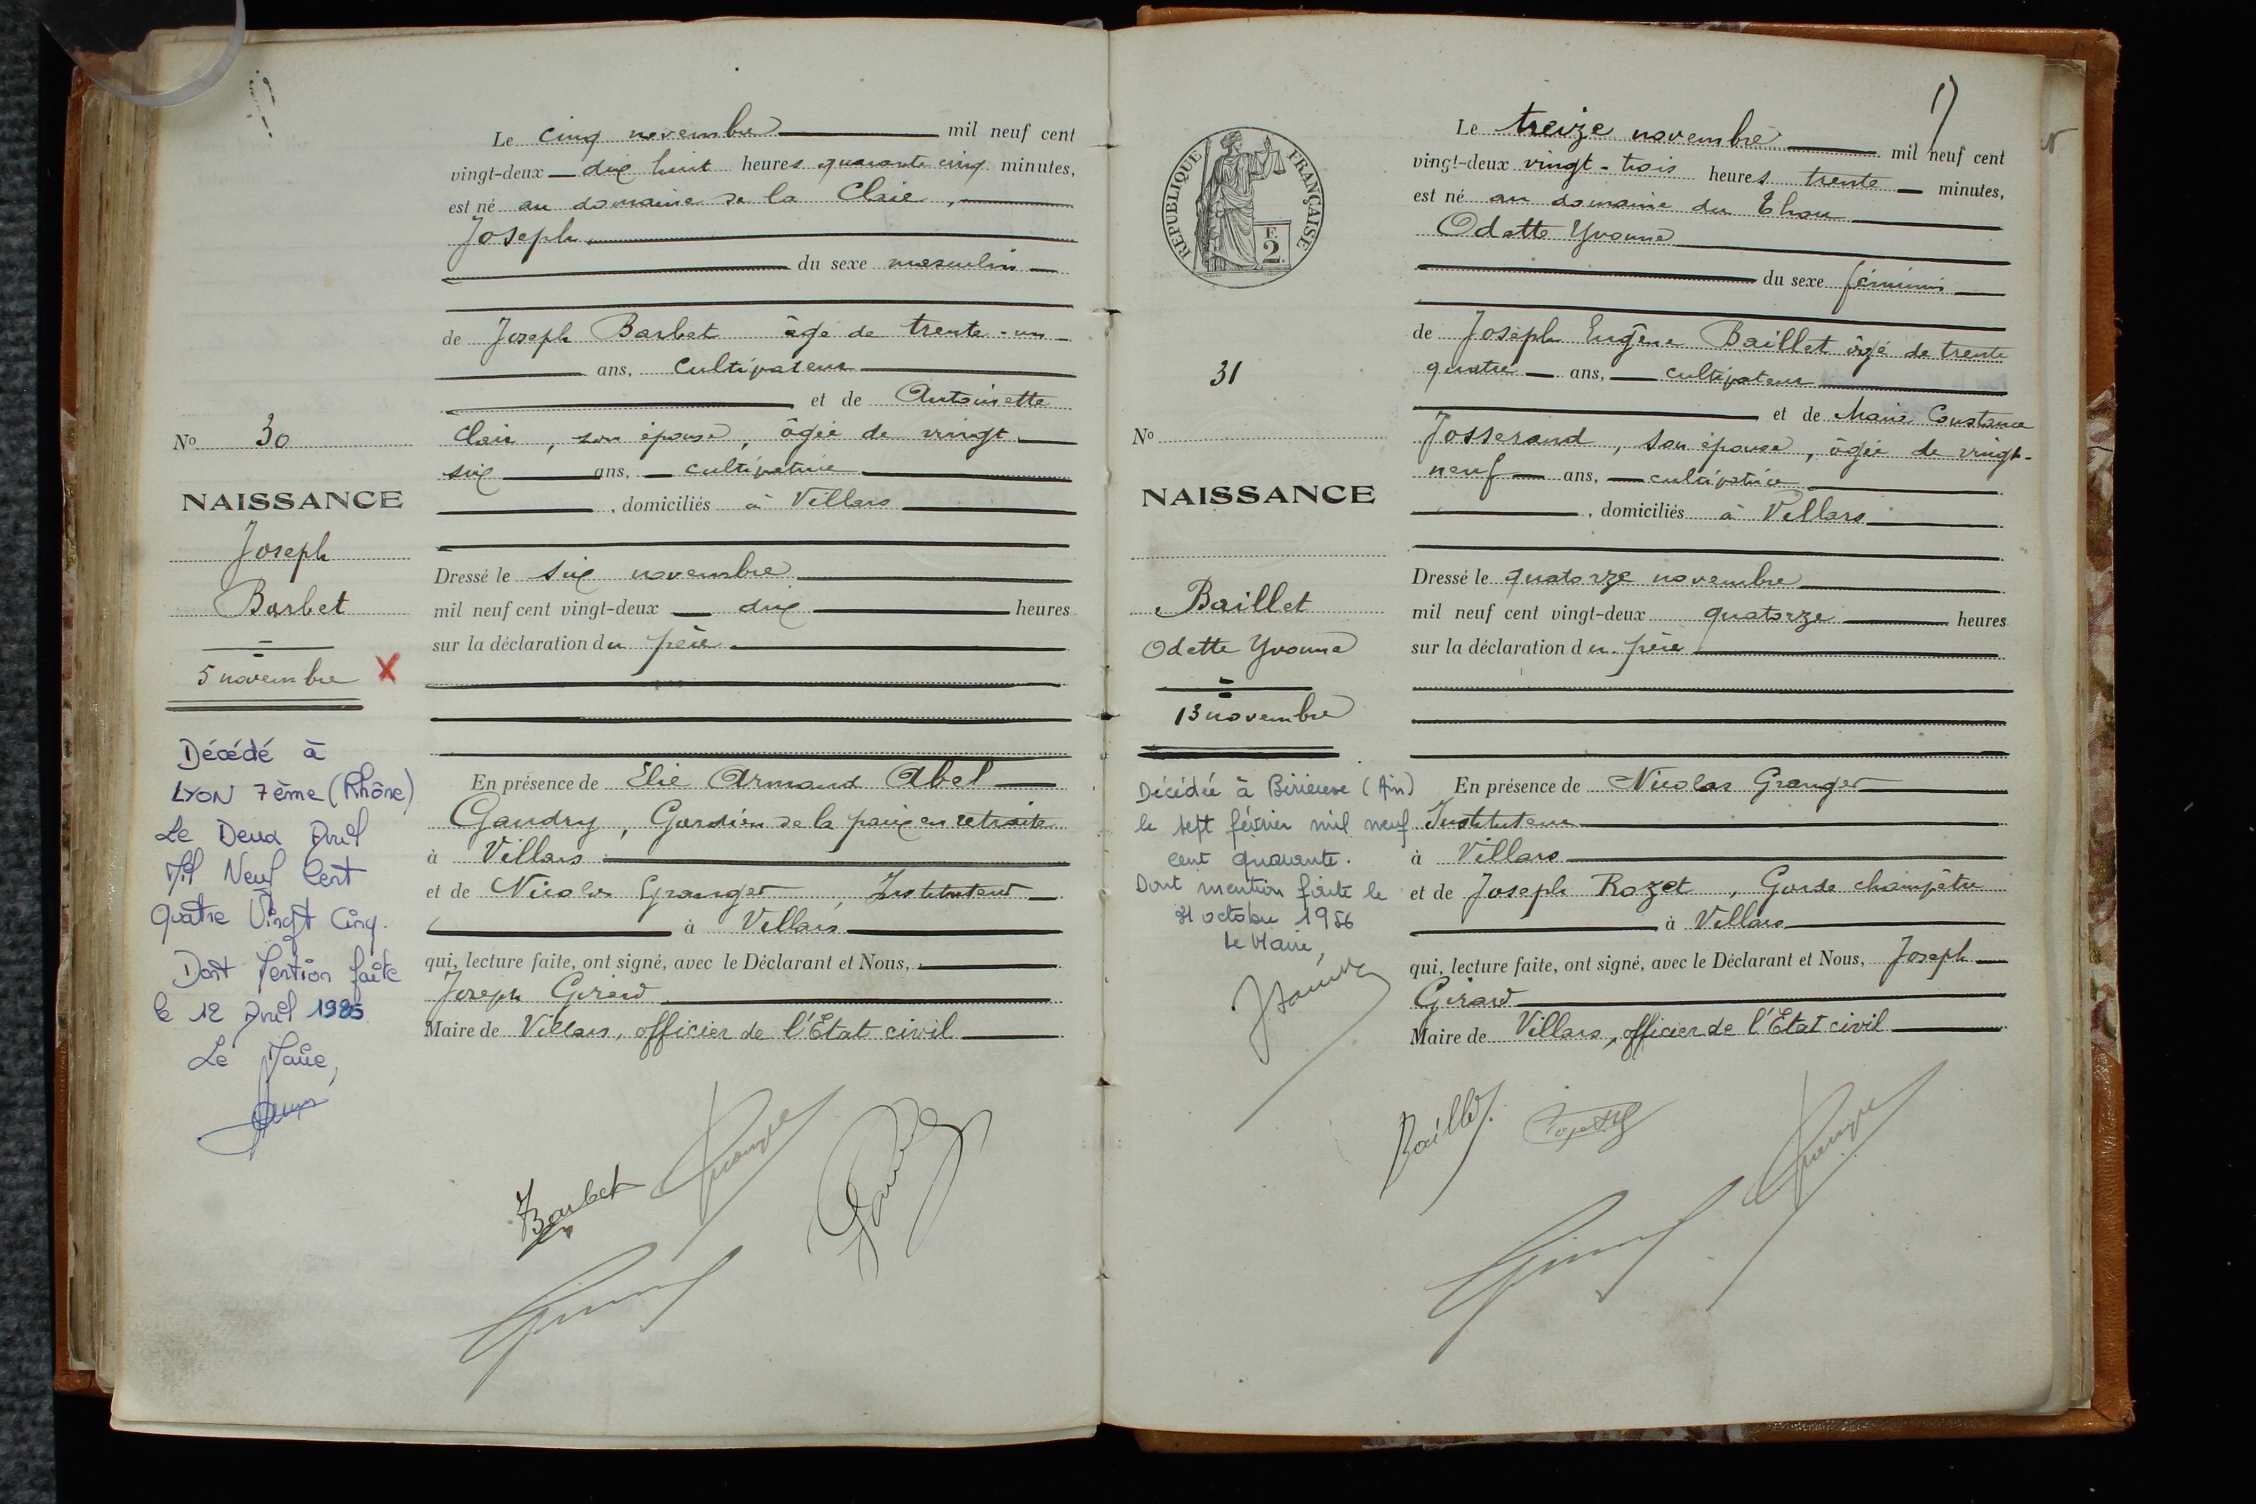 Le cinq novembre mil neuf cent
vingt-deux dix huit heures quarante cinq minutes,
est né au domaine de la Claie,
Joseph
du sexe masculin
de Joseph Barbet âgé de trente-un
ans, cultivateur
et de Antoinette
Clair, son épouse, âgée de vingt
six ans, cultivatrice
, domiciliés à Villars
Dressé le six novembre
mil neuf cent vingt-deux dix heures
sur la déclaration du père
En présence de Elie Armand Abel
Gaudry, Gardien de la paix en retraite
à Villars
et de Nicolas Granger, Instituteur
à Villars
qui, lecture faite, ont signé, avec le Déclarant et Nous,
Joseph Girard
Maire de Villars, officier de l'Etat civil
Barbet
Granger
Gaudry
Girard
No 30
NAISSANCE
Joseph
Barbet
5 novembre X
Décédé à
LYON 7ème (Rhône)
Le Deux Avril
Mil Neuf Cent
Quatre Vingt Cinq.
Dont Mention faite
le 12 Avril 1985
Le Maire,
17
REPUBLIQUE FRANÇAISE
F.
2
Le treize novembre mil neuf cent
vingt-deux vingt-trois heures trente minutes,
est né au domaine du Thou
Odette Yvonne
du sexe féminin
de Joseph Eugène Baillet âgé de trente
quatre ans, cultivateur
et de Marie Constance
Josserand, son épouse, âgée de vingt-
neuf ans, cultivatrice
, domiciliés à Villars
Dressé le quatorze novembre
mil neuf cent vingt-deux quatorze heures
sur la déclaration du père
En présence de Nicolas Granger
Instituteur
à Villars
et de Joseph Rozet, Garde champêtre
à Villars
qui, lecture faite, ont signé, avec le Déclarant et Nous, Joseph
Girard
Maire de Villars, officier de l'Etat civil
Baillet
Granger
Girard
31
No
NAISSANCE
Baillet
Odette Yvonne
13 novembre
Décédée à Birieux (Ain)
le sept février mil neuf
cent quarante.
Dont mention faite le
31 octobre 1956
Le Maire,